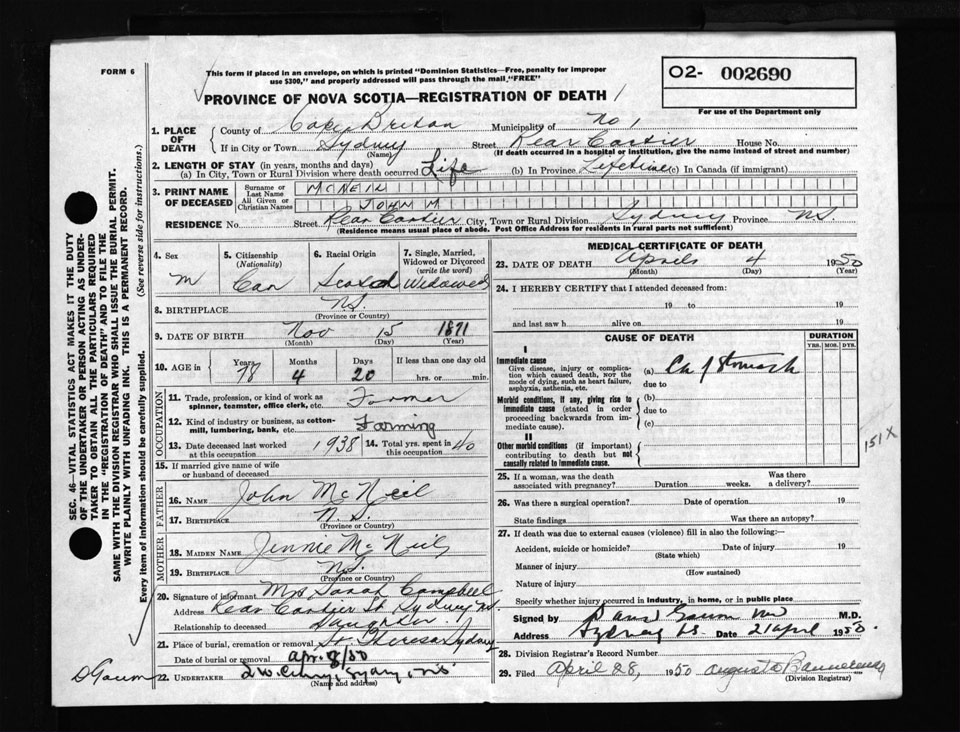 FORM 6
This form if placed in an envelope, on which is printed "Dominion Statistics—Free, penalty for improper
use $300," and properly addressed will pass through the mail "FREE"
PROVINCE OF NOVA SCOTIA—REGISTRATION OF DEATH
O2- 002690
For use of the Department only
1. PLACE OF DEATH
County of Cape Breton Municipality of No 1
If in City or Town Sydney (Name) Street Rear Cartier House No.
(If death occurred in a hospital or institution, give the name instead of street and number)
2. LENGTH OF STAY (in years, months and days)
(a) In City, Town or Rural Division where death occurred Life (b) In Province Lifetime (c) In Canada (if immigrant)
3. PRINT NAME OF DECEASED
Surname or Last Name MCNEIL
All Given or Christian Names JOHN M
RESIDENCE No. Street Rear Cartier City, Town or Rural Division Sydney Province N.S.
(Residence means usual place of abode. Post Office Address for residents in rural parts not sufficient)
4. Sex M
5. Citizenship (Nationality) Can
6. Racial Origin Scotch
7. Single, Married, Widowed or Divorced (write the word) Widowed
8. BIRTHPLACE N.S. (Province or Country)
9. DATE OF BIRTH Nov (Month) 15 (Day) 1871 (Year)
10. AGE in Years 78 Months 4 Days 20 If less than one day old hrs. or min.
OCCUPATION
11. Trade, profession, or kind of work as spinner, teamster, office clerk, etc. Farmer
12. Kind of industry or business, as cotton-mill, lumbering, bank, etc. Farming
13. Date deceased last worked at this occupation 1938 14. Total yrs. spent in this occupation 40
15. If married give name of wife or husband of deceased
FATHER
16. NAME John McNeil
17. BIRTHPLACE N.S. (Province or Country)
MOTHER
18. MAIDEN NAME Jennie McNeil
19. BIRTHPLACE N.S. (Province or Country)
20. Signature of informant Mrs Sarah Campbell
Address Rear Cartier St Sydney N.S.
Relationship to deceased Daughter
21. Place of burial, cremation or removal St. Theresa Sydney
Date of burial or removal Apr. 8/50
22. UNDERTAKER Sydney, N.S.
(Name and address)
MEDICAL CERTIFICATE OF DEATH
23. DATE OF DEATH April (Month) 4 (Day) 1950 (Year)
24. I HEREBY CERTIFY that I attended deceased from:
19 to 19
and last saw h alive on 19
CAUSE OF DEATH
DURATION
YRS. MOS. DYS.
I
Immediate cause
Give disease, injury or complication which caused death, not the mode of dying, such as heart failure, asphyxia, asthenia, etc.
(a) Ca of Stomach
due to
Morbid conditions, if any, giving rise to immediate cause (stated in order proceeding backwards from immediate cause).
(b)
due to
(c)
II
Other morbid conditions (if important) contributing to death but not causally related to immediate cause.
151X
25. If a woman, was the death associated with pregnancy? Duration weeks. Was there a delivery?
26. Was there a surgical operation? Date of operation 19
State findings Was there an autopsy?
27. If death was due to external causes (violence) fill in also the following:—
Accident, suicide or homicide? (State which) Date of injury 19
Manner of injury (How sustained)
Nature of injury
Specify whether injury occurred in industry, in home, or in public place
Signed by M.D.
Address Sydney N.S. Date 21 April 1950.
28. Division Registrar's Record Number
29. Filed April 28, 1950 Augusta Bannerman
(Division Registrar)
SEC. 46—VITAL STATISTICS ACT MAKES IT THE DUTY
OF THE UNDERTAKER OR PERSON ACTING AS UNDERTAKER
TO OBTAIN ALL THE PARTICULARS REQUIRED
IN THE "REGISTRATION OF DEATH" AND TO FILE THE
SAME WITH THE DIVISION REGISTRAR WHO SHALL ISSUE THE BURIAL PERMIT.
WRITE PLAINLY WITH UNFADING INK. THIS IS A PERMANENT RECORD.
Every item of information should be carefully supplied. (See reverse side for instructions.)